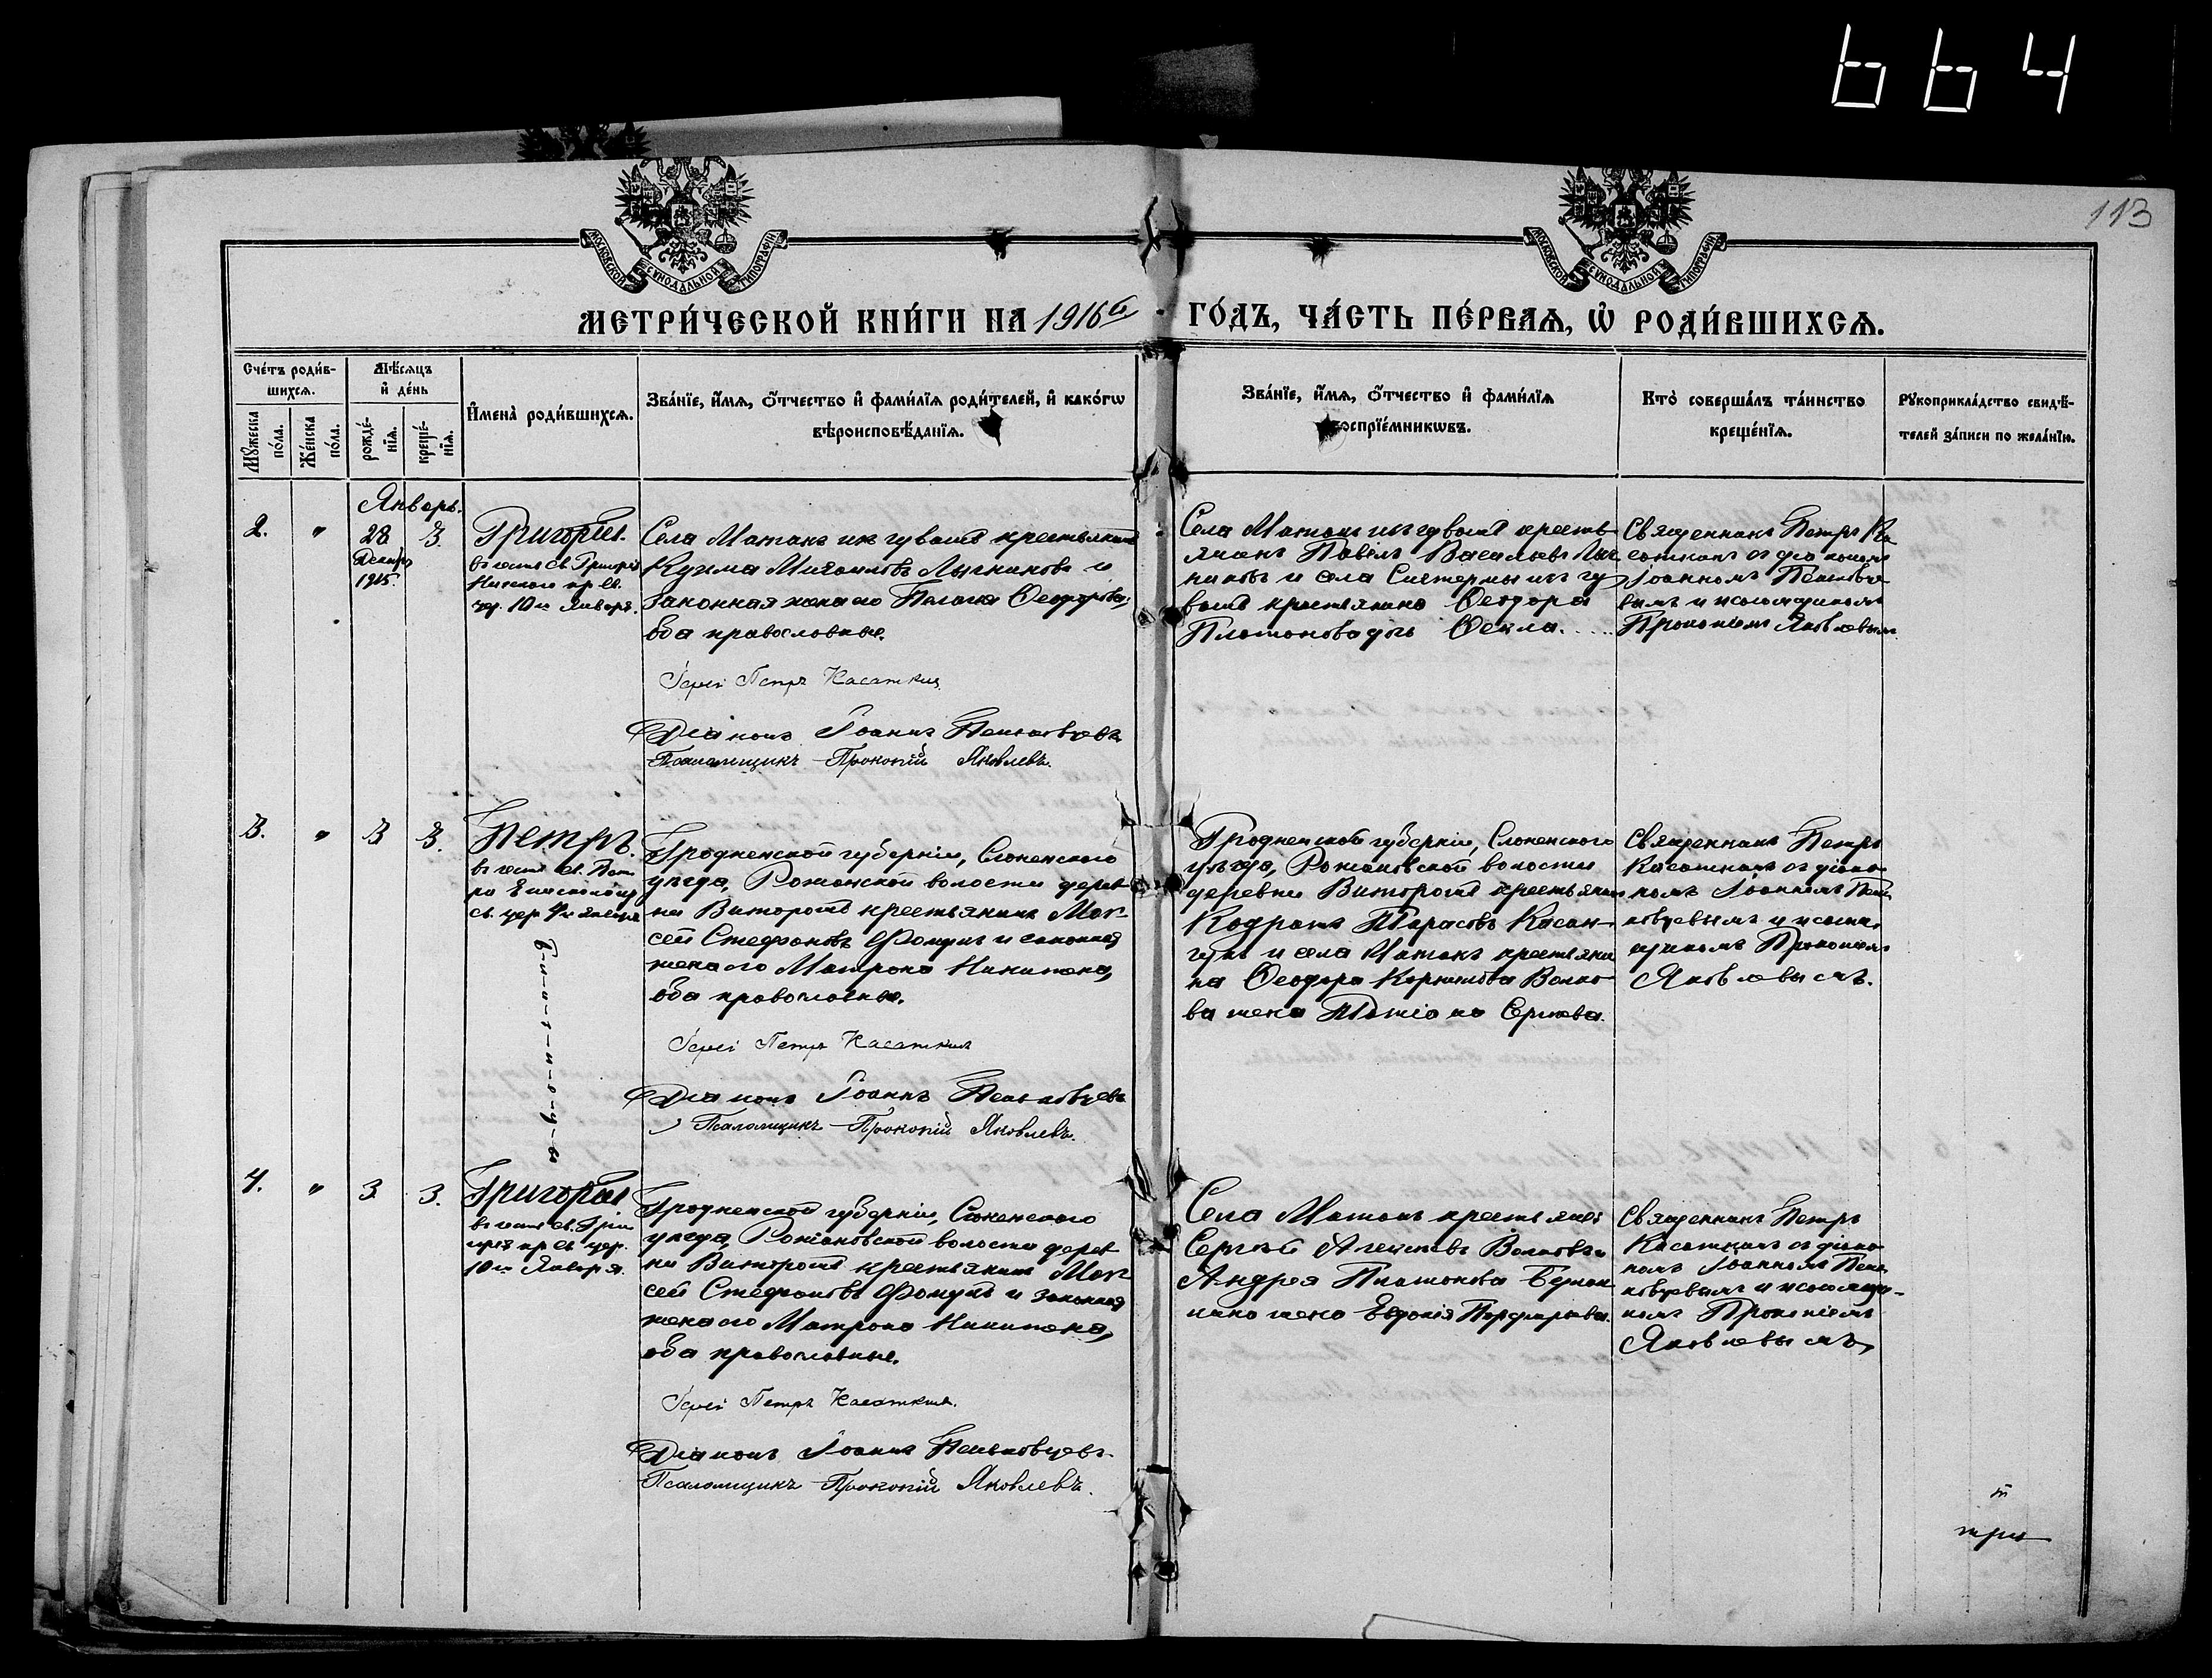 664
113
МОСКОВСКОЙ СѴНОДАЛЬНОЙ ТИПОГРАФІИ
МОСКОВСКОЙ СѴНОДАЛЬНОЙ ТИПОГРАФІИ
МЕТРИ́ЧЕСКОЙ КНИ́ГИ НА 1916й ГО́ДЪ, ЧА́СТЬ ПЕ́РВАѦ, Ѡ҆ РОДИ́ВШИХСѦ.
Сче́тъ роди́в-
шихсѧ.
Мѣ́сѧцъ
и҆ де́нь
Мꙋжеска по́ла.
Же́нска по́ла.
рожде́-нїѧ.
креще́-нїѧ.
И҆мена̀ роди́вшихсѧ.
Зва́нїе, и҆́мѧ, ѻ҆́тчество и҆ фами́лїѧ роди́телей, и҆ како́гѡ
вѣроисповѣ́данїѧ.
Зва́нїе, и҆́мѧ, ѻ҆́тчество и҆ фами́лїѧ
воспрїе́мникѡвъ.
Кто̀ соверша́лъ та́инство
креще́нїѧ.
Рꙋкоприкла́дство свидѣ́-
телей за́писи по жела́нїю.
Январь.
2.
"
28
Декабря
1915.
3.
Григорій.
въ честь св. Григорія
Нисскаго пр. св.
цер. 10го Января.
Села Матакъ изъ чувашъ крестьянинъ
Кузма Михаиловъ Лычниковъ и
законная жена его Пелагія Ѳеодорова,
оба православные.
Іерей Петръ Касаткин
Діаконъ Іоаннъ Пеньковцевъ
Псаломщикъ Прокопій Яковлевъ.
Села Матакъ изъ чувашъ кресть-
янинъ Павелъ Васильевъ Лыч
никовъ и села изъ чу
вашъ крестьянина Ѳеодора
Платонова дочь Ѳекла.
Священникъ Петръ Ка
саткинъ съ діакономъ
Іоанномъ Пеньковце
вымъ и псаломщикомъ
Прокопіемъ Яковлевымъ
3.
"
3
3.
Петръ.
въ честь св. Пет
ра
св. цер. Января
Гродненской губерніи, Слонимскаго
уѣзда, Рожанской волости дерев
ни крестьянинъ Мои
сей Стефановъ и законная
жена его Матрона Никитина,
оба православные.
Іерей Петръ Касаткинъ
Діаконъ Іоаннъ Пеньковцевъ
Псаломщикъ Прокопій Яковлевъ.
Б-л-и-з-н-е-ц-ы
Гродненской губерніи, Слонимскаго
уѣзда, Рожановской волости
деревни крестьянинъ
Кодратъ Тарасовъ
и села Матакъ крестьяни
на Ѳеодора Корнилова Волко
ва жена Татіана Сергѣева.
Священникъ Петръ
Касаткинъ съ діако
номъ Іоанномъ Пень
ковцевымъ и псалом
щикомъ Прокопіемъ
Яковлевымъ.
4.
"
3
3.
Григорій
въ честь св. Григо
рія пр. св. цер.
10го Января.
Гродненской губерніи, Слонимскаго
уѣзда, Рожановской волости дерев
ни крестьянинъ Мои
сей Стефановъ и законная
жена его Матрона Никитина,
оба православные.
Іерей Петръ Касаткинъ.
Діаконъ Іоаннъ Пеньковцевъ.
Псаломщикъ Прокопій Яковлевъ.
Села Матакъ крестьянинъ
Сергѣй Алексѣевъ Волковъ и
Андрея Платонова
жена Евдокія Порфирьева.
Священникъ Петръ
Касаткинъ съ діако
номъ Іоанномъ Пень
ковцевымъ и псаломщи-
комъ Прокопіемъ
Яковлевымъ
три